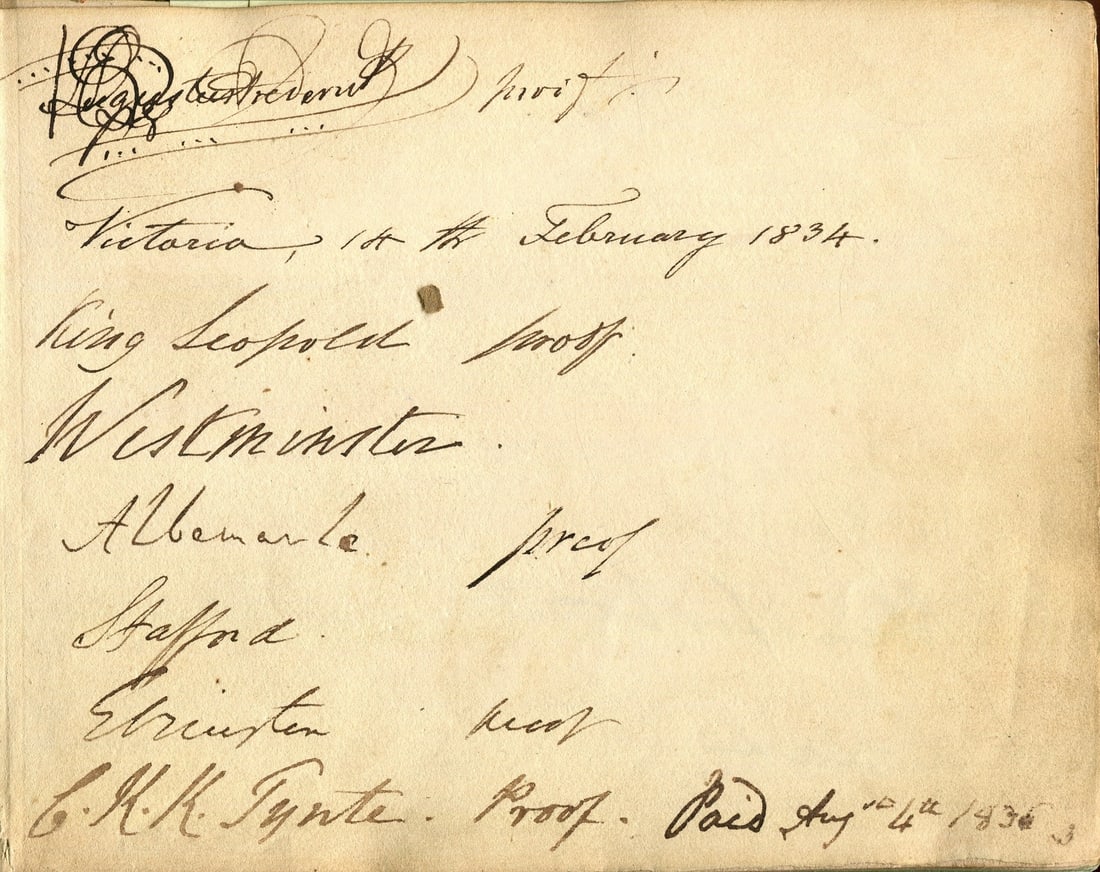 Augustus Frederick proof.
Victoria, 14th February 1834.
King Leopold proof.
Westminster.
Albemarle. proof
Stafford.
Ebrington proof
C. K. K. Tynte. Proof. Paid Augst 4th